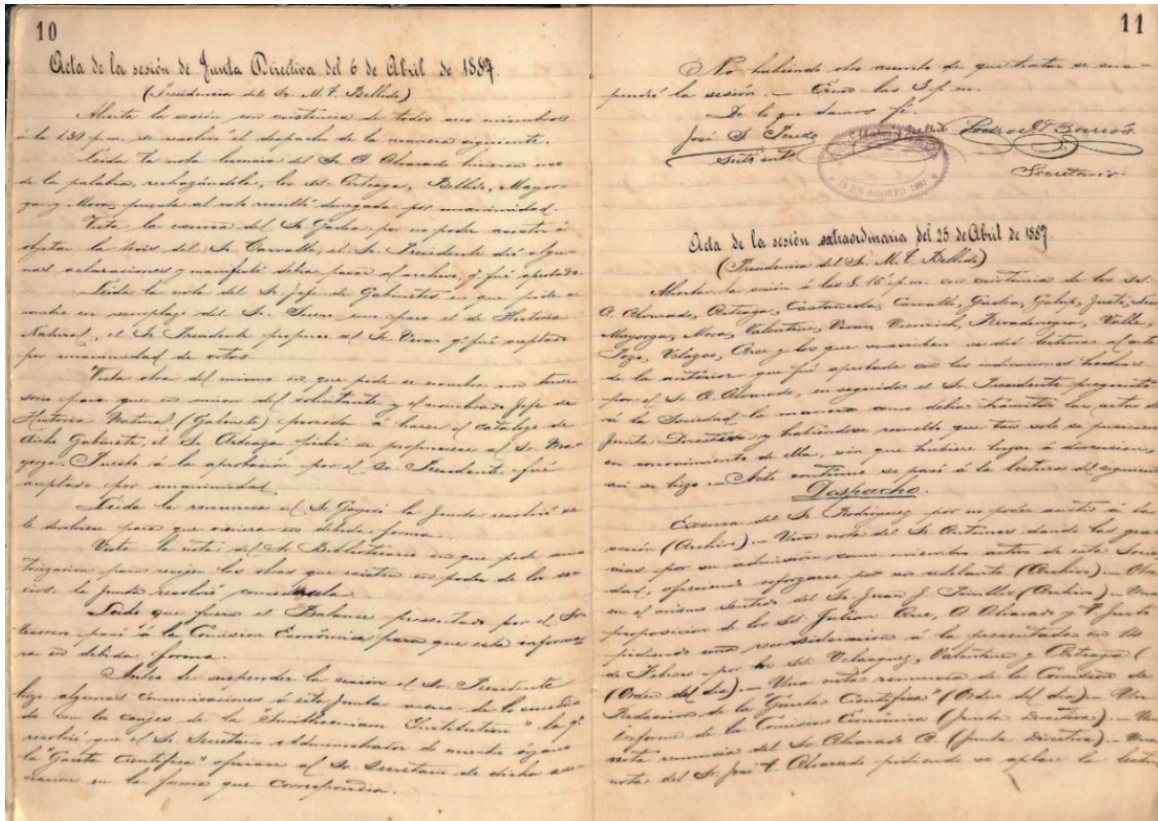 10
Acta de la sesión de Junta Directiva del 6 de Abril de 1887.
(Presidencia del Sr. M. F. Bellido)
Abierta la sesión con asistencia de todos sus miembros
á la 1.30 p.m. se resolvió el despacho de la manera siguiente.
Leida la nota licencia del Sr. O. Alvarado hicieron uso
de la palabra, rechazándola, los SS. Arteaga, Bellido, Mayor-
ga y Mora, puesta al voto resultó denegada por unanimidad.
Vista la excusa del Sr. Gastra por no poder asistir á
objetar la tesis del Sr. Carvallo, el Sr. Presidente dió algu-
nas aclaraciones y manifestó debia pasar al archivo, y fué aprobado.
Leida la nota del Sr. Jefe de Gabinetes en que pide se
nombre en remplazo del Sr. uno para el de Historia
Natural, el Sr. Presidente propuso al Sr. Vivas q' fué aceptado
por unanimidad de votos
Vista otra del mismo en que pide se nombre un terce
socio para que en union del solicitante y el nombrado Jefe de
Historia Natural (Gabinete) proceda á hacer el catálogo de
dicho Gabinete, el Sr. Arteaga pidió se propusiese al Sr. Ma-
yorga. Puesto á la aprobación por el Sr. Presidente fué
aceptado por unanimidad
Leida la renuncia del Sr. la Junta resolvió se
le devolviese para que viniera en debida forma.
Vista la nota del Sr. Bibliotecario en que pide auto
rizacion para recojer las obras que existen en poder de los so-
cios, la Junta resolvió concedersela.
Leido que fuera el Balance presentado por el Sr.
tesorero pasó á la Comision Económica para que esta informa-
ra en debida forma.
Antes de suspender la sesión el Sr. Presidente
hizo algunas comunicaciones á esta Junta acerca de lo sucedido
con los canjes de la "Smithsoniam Institution" la q'
resolvió que el Sr. Secretario Administrador de nuestro órgano
la "Gaceta Científica" oficiase al Sr. Secretario de dicha aso-
ciacion en la forma que correspondia.
11
No habiendo otro asunto de que tratar se sus-
pendió la sesión. — Eran las 3 p.m.
De lo que damos fé.
José S.
Secretario
15 DE AGOSTO 1882
Acta de la sesión extraordinaria del 25 de Abril de 1887
(Presidencia del Sr. M. F. Bellido)
Abierta la sesión á las 8.15 p.m. con asistencia de los SS.
A. Alvarado, Arteaga, Castañeda, Carvallo, Gastra, Justo,
Mayorga, Mora, Valentine, Vivas, Rivadeneyra, Valle,
Arce y los que suscriben se dió lectura al acta
de la anterior que fué aprobada con las indicaciones hechas
por el Sr. A. Alvarado, en seguida el Sr. Presidente preguntó
á la Sociedad la manera como debia tramitar las actas de
Junta Directiva y habiéndose resuelto que tan solo se pusiesen
en conocimiento de ella, sin que hubiese lugar á discusion,
asi se hizo. — Acto continuo se pasó á la lectura del siguiente
Despacho.
Excusa del Sr. Rodriguez por no poder asistir á la
sesión (Archivo). — Una nota del Sr. Antunes dando las gra-
cias por su admisión como miembro activo de esta Socie
dad, ofreciendo esforzarse por su adelanto (Archivo). — Otra
en el mismo sentido del Sr. Juan J. (Archivo). — Una
proposicion de los SS. Julian Arce, A. Alvarado y F. Justo
pidiendo una reconsideracion á la presentada en 14
de Febrero por los SS. Velasquez, Valentine y Arteaga
(Orden del dia). — Una nota renuncia de la Comision de
Redaccion de la "Gaceta Científica" (Orden del dia). — Un
informe de la Comision Económica (Junta directiva). — Una
nota renuncia del Sr. Alvarado A. (Junta directiva). — Una
nota del Sr. José F. Alvarado pidiendo se aplace la lectura